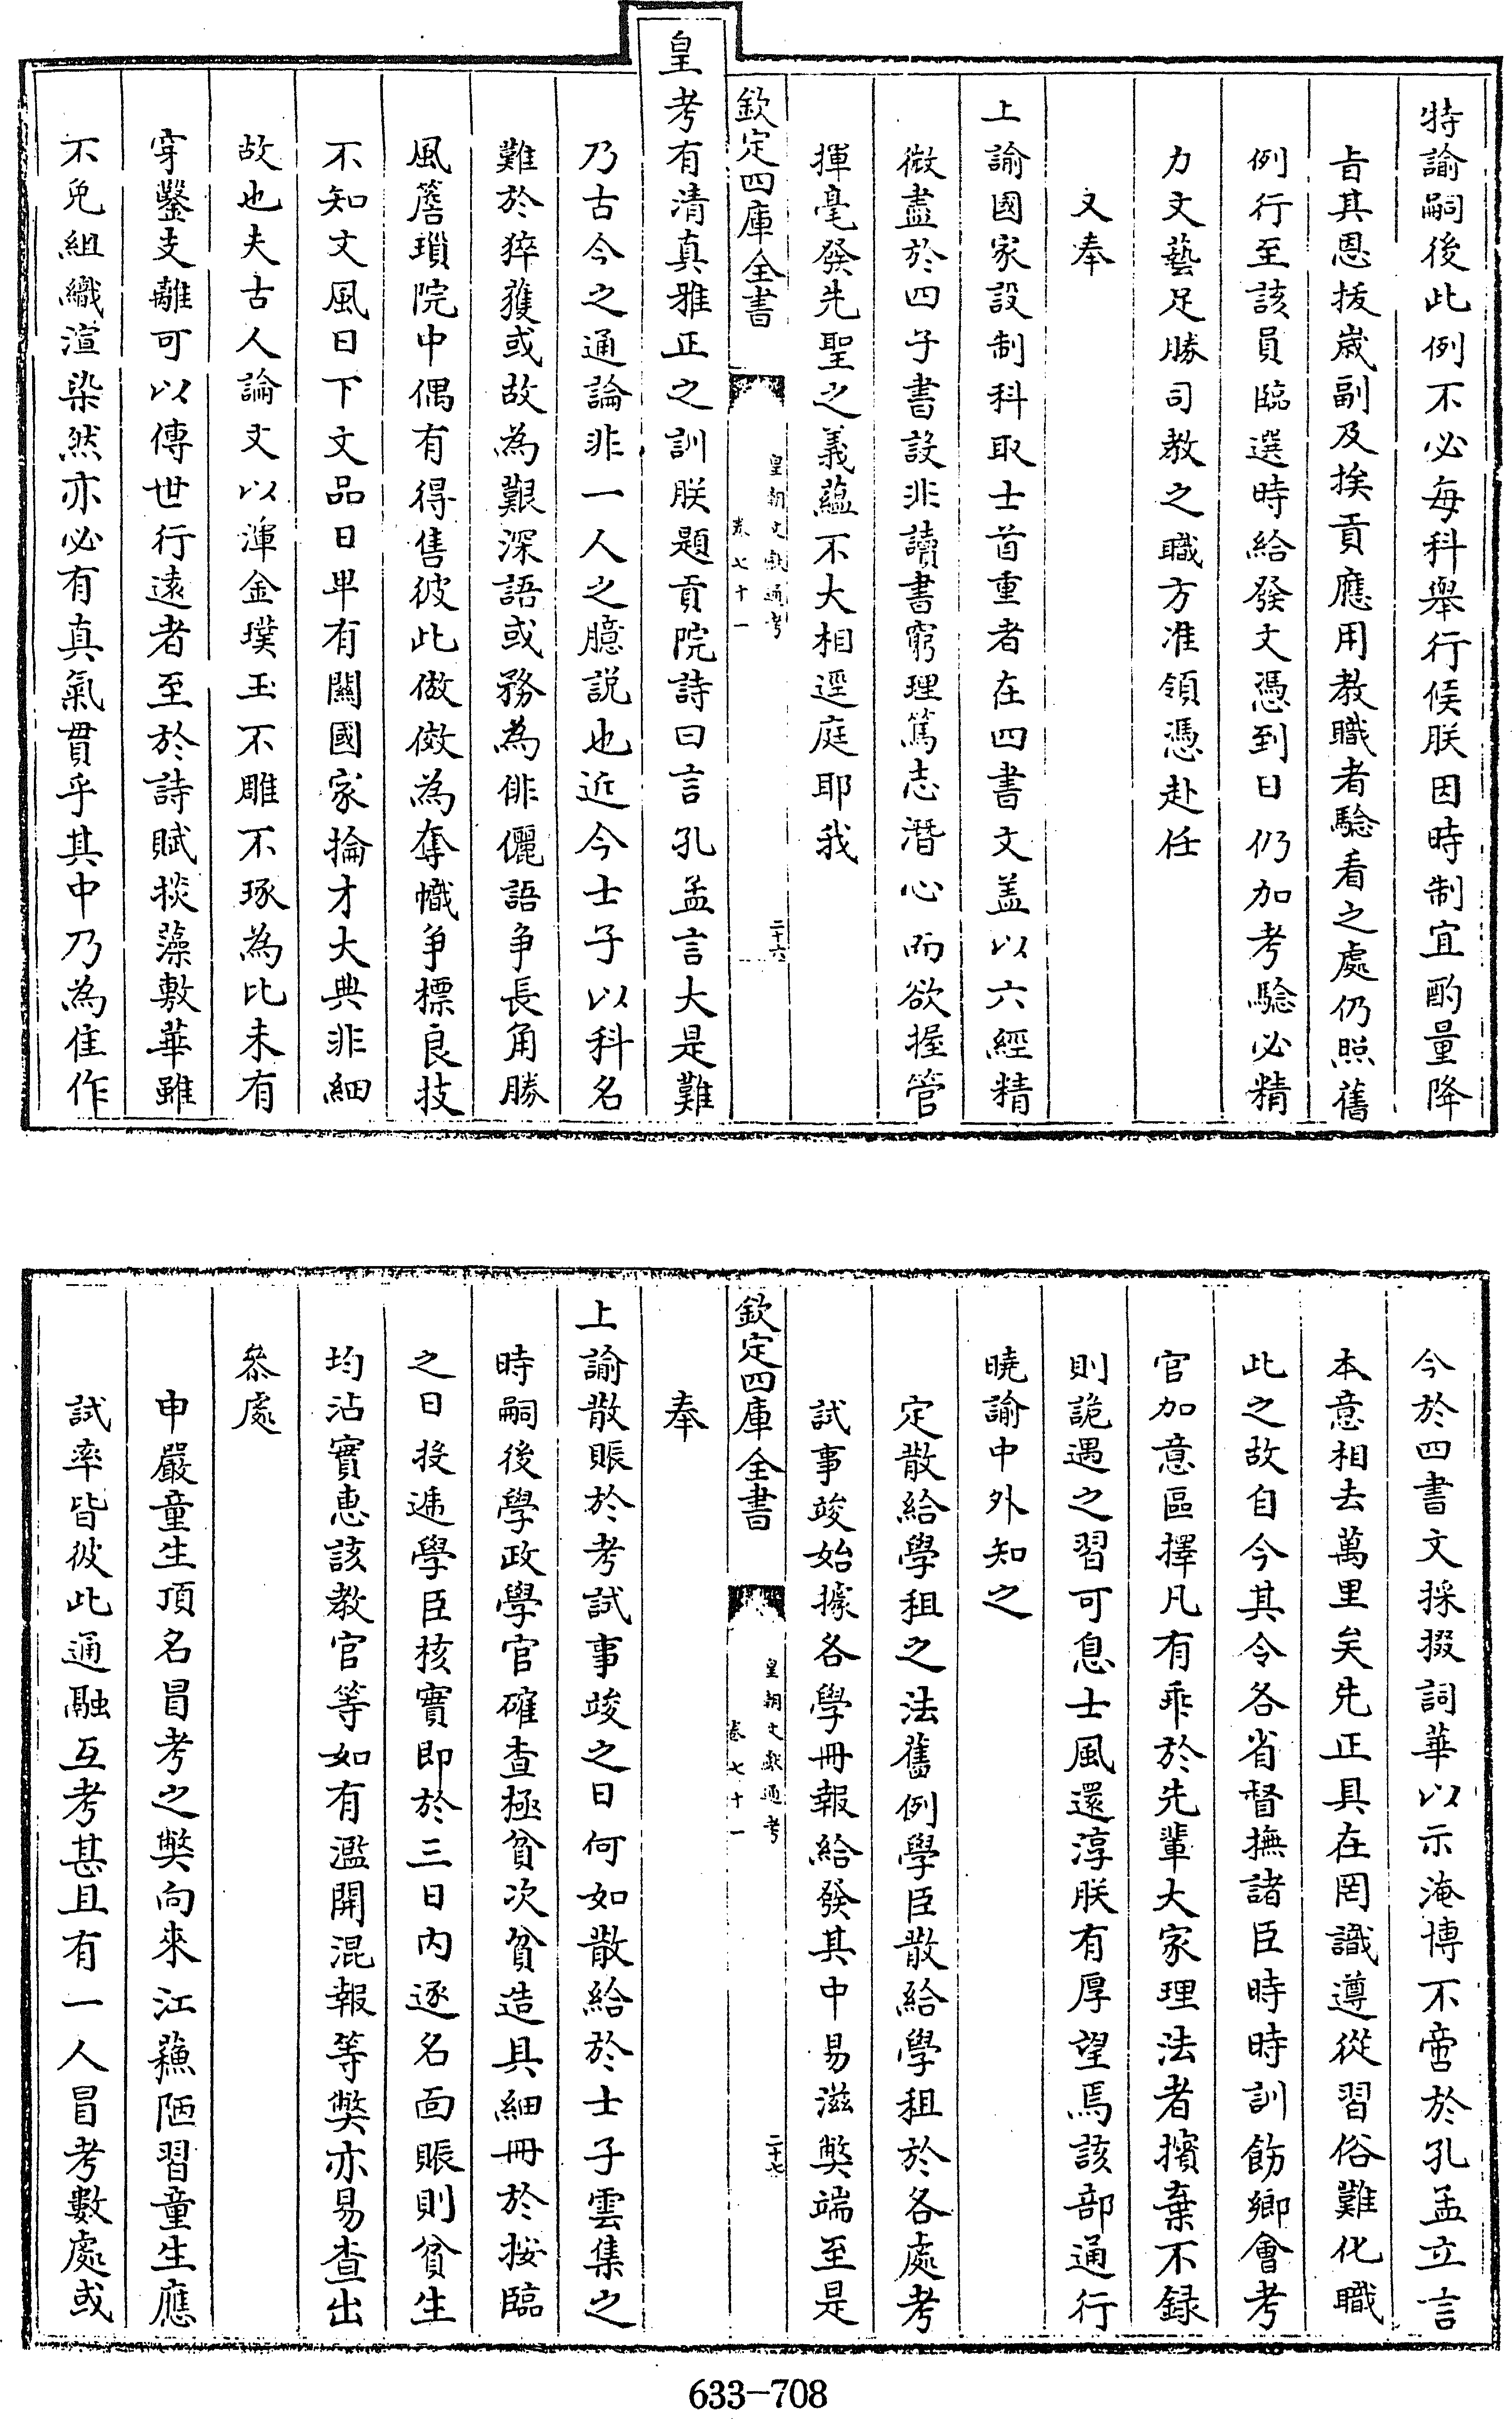 特諭嗣後此例不必每科舉行候朕因時制宜酌量降
旨其恩拔歲副及挨貢應用教職者驗看之處仍照舊
例行至該員臨選時給發文憑到日仍加考驗必精
力文藝足勝司教之職方准領憑赴任
又奉
上諭國家設制科取士首重者在四書文盖以六經精
微盡於四子書設非讀書窮理篤志潛心而欲握管
揮毫發先聖之義蘊不大相逕庭耶我
欽定四庫全書
皇朝文獻通考
卷七十一
二十六
皇考有清真雅正之訓朕題貢院詩曰言孔孟言大是難
乃古今之通論非一人之臆説也近今士子以科名
難於猝獲或故為艱深語或務為俳儷語爭長角勝
風簷瑣院中偶有得售彼此倣傚為奪幟爭標良技
不知文風日下文品日卑有關國家掄才大典非細
故也夫古人論文以渾金璞玉不雕不琢為比未有
穿鑿支離可以傳世行遠者至於詩賦掞藻敷華雖
不免組織渲染然亦必有真氣貫乎其中乃為佳作
今於四書文採掇詞華以示淹博不啻於孔孟立言
本意相去萬里矣先正具在罔識遵從習俗難化職
此之故自今其令各省督撫諸臣時時訓飭鄉會考
官加意區擇凡有乖於先輩大家理法者擯棄不録
則詭遇之習可息士風還淳朕有厚望焉該部通行
曉諭中外知之
定散給學租之法舊例學臣散給學租於各處考
試事竣始據各學冊報給發其中易滋弊端至是
欽定四庫全書
皇朝文獻通考
卷七十一
二十七
奉
上諭散賑於考試事竣之日何如散給於士子雲集之
時嗣後學政學官確查極貧次貧造具細冊於按臨
之日投遞學臣核實即於三日內逐名面賑則貧生
均沾實惠該教官等如有濫開混報等弊亦易查出
叅處
申嚴童生頂名冒考之弊向來江蘓陋習童生應
試率皆彼此通融互考甚且有一人冒考數處或
633-708